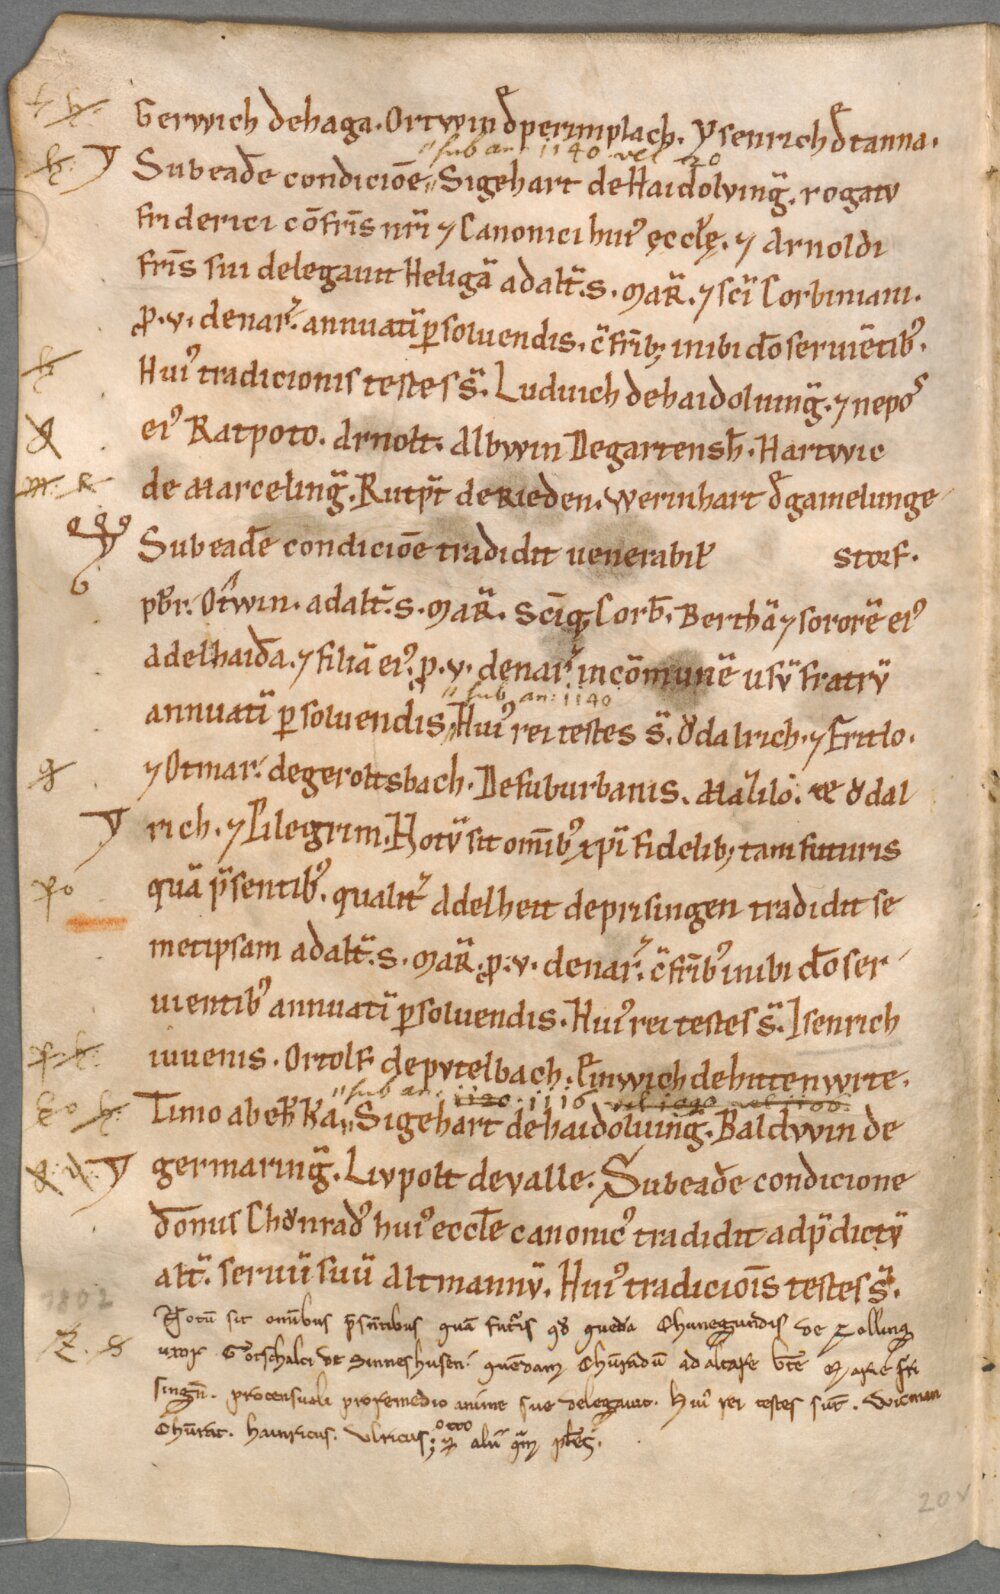 Gerwich dehaga. Ortwin đ perinplach. Ysenrich đ tanna.
sub an. 1140 vel 20
Sub eadē condiciōe Sigehart de Haidolving̃. rogatu
friderici cōfr̄is nr̄i ⁊ Canonici huiꝰ ęccłę. ⁊ Arnoldi
fr̄is sui delegauit Heligā ad alt̄. s. MAR̄. ⁊ sc̄i Corbiniani.
ꝓ. v. denar̄. annuatī ꝑsoluendis. c̄ fr̄ibꝫ inibi dō seruiētibꝰ.
Huiꝰ tradicionis testes s̄. Luduich de haidoluing̃. ⁊ neposͬ
eiꝰ Ratpoto. Arnolt. Albwin Degartensb̄. Hartwic
de Marceling̃. Rutpt̄ de Rieden. Werinhart đ gamelunge
Sub eadē condiciōe tradidit uenerabił storf.
pb̄r. Otwin. ad alt̄. s. MAR̄. Sc̄iqꝫ Corb̄. Berthā ⁊ sororē eiꝰ
Adelhaidā. ⁊ filiā eiꝰ. ꝓ. v. denar̄ in cōmunē usū fratrū
sub an: 1140
annuatī ꝑsoluendis. Huiꝰ rei testes s̄. Ǒdalrich. ⁊ Eritlo.
⁊ Otmar. degeroltsbach. De suburbanis. Malilo. et Ǒdal
rich. ⁊ Pilegrim. Notū sit om̄ibꝰ xp̄i fidelibꝫ tam futuris
quā p̄sentibꝰ. qualit̄ Adelheit deprisingen tradidit se
metipsam ad alt̄. s. MAR̄. ꝓ. v. denar̄. c̄ fr̄ibꝰ inibi dō ser
uientibꝰ annuatī ꝑsoluendis. Huiꝰ rei testes s̄. Isenrich
iuuenis. Ortolf de pvtelbach. Einwich dehittenwrte.
sub an: 1120. 1116 vel 1090 vel 1100.
Timo ab ekka. Sigehart de haidoluing̃. Baldwin de
germaring̃. Livpolt de valle. Sub eadē condicione
dōnus Chǒnradꝰ huiꝰ eccłe canonicꝰ tradidit ad p̄dictū
alt̄. seruū suū Altmannū. Huiꝰ tradiciōis testes s̄.
1802
Notū sit omībus p̄sn̄tibus quā futūris qđ quedā Chunegundis de Zolling
uxor Gotschalci de Sinneshusen. quēdam Chūradū ad altare bt̄e Marie fri
singn̄. procensuali pro remedio anime sue delegauit. Huiꝰ rei testes sūt. Wicman
Chūrat. Hainricus. Ulricus; ⁊ alii q̄m pl̄es.
20v